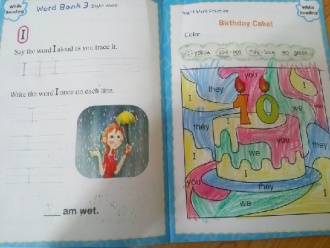 While Reading
Word Bank 3 Sight Word
I
Say the word I aloud as you trace it.
I I
Write the word I once on each line.
___ am wet.
While Reading
Sight Word Practice
Birthday Cake!
Color
you
I
they
I
they
we
they
10
I
they
we
I
we
you
they
I
we